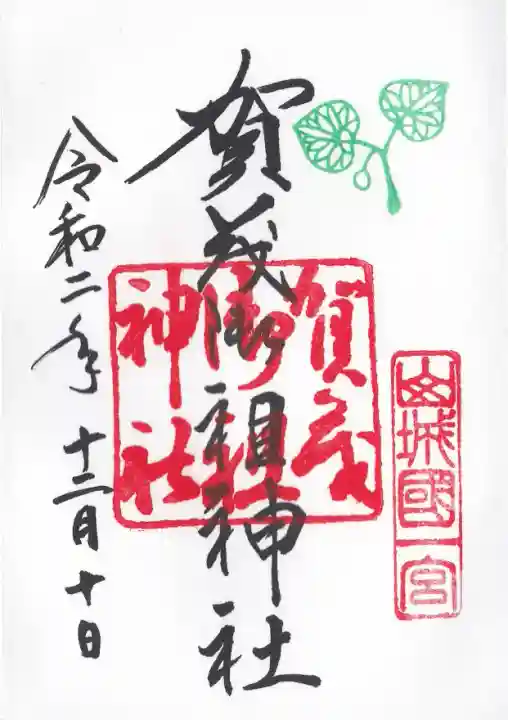 山城國一宮
賀茂御祖神社
賀茂
御祖
神社
令和二年十二月十日